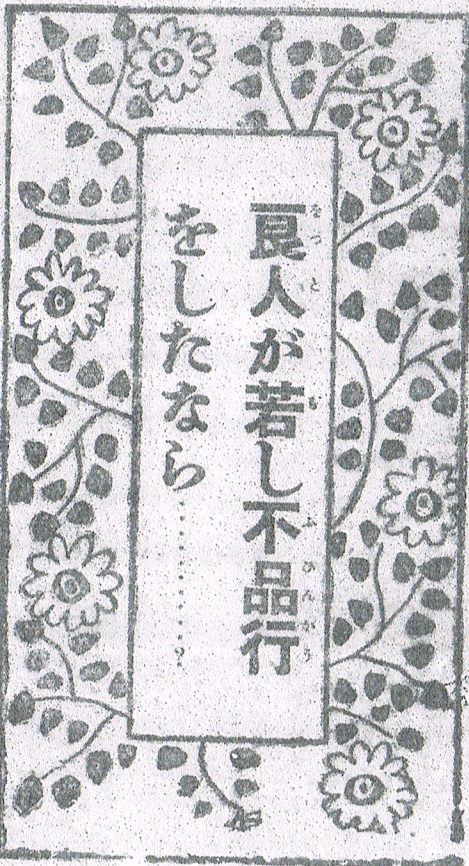 良人が若し不品行
をしたなら…………?